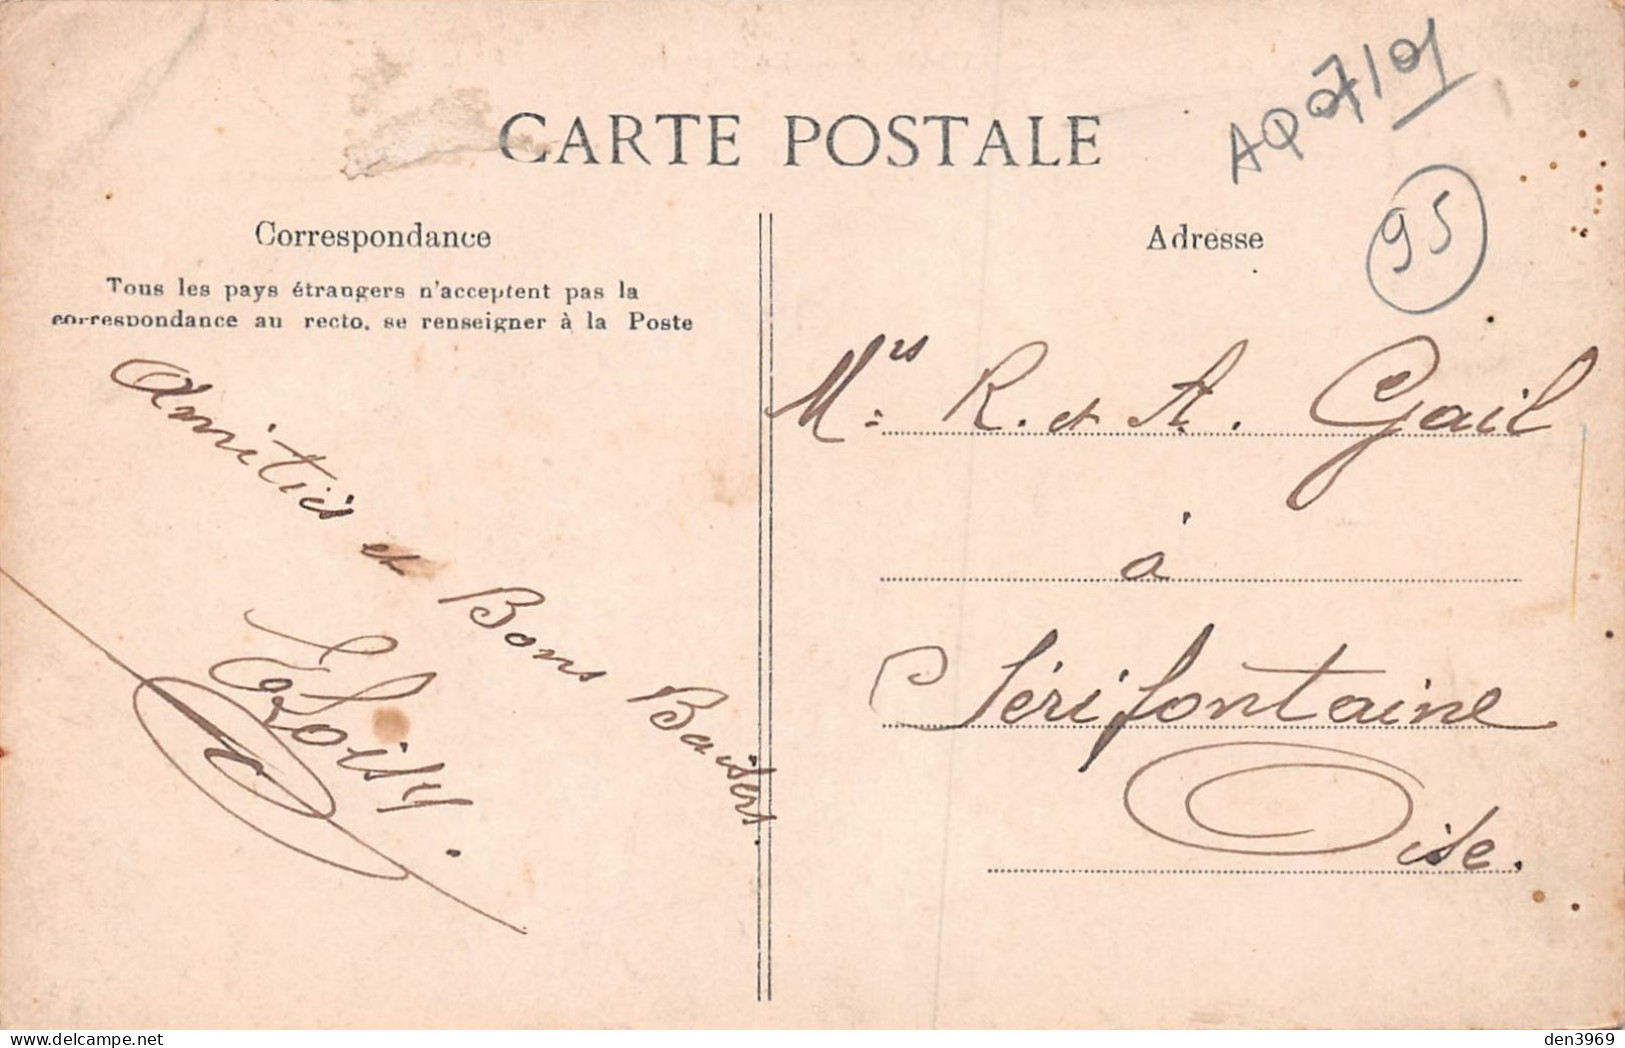 AQ 07/01
CARTE POSTALE
95
Correspondance
Adresse
Tous les pays étrangers n'acceptent pas la
correspondance au recto, se renseigner à la Poste
Amitiés et Bons Baisers.
Mrs R. et A. Gail
à
Sérifontaine
Oise.
delcampe.net
den3969